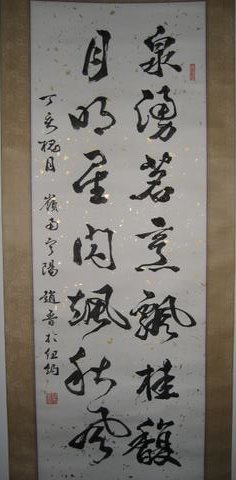 泉湧茗烹飄桂馥
月明星閃颯秋風
丁亥槐月 嶺南寧陽 趙 於紐約